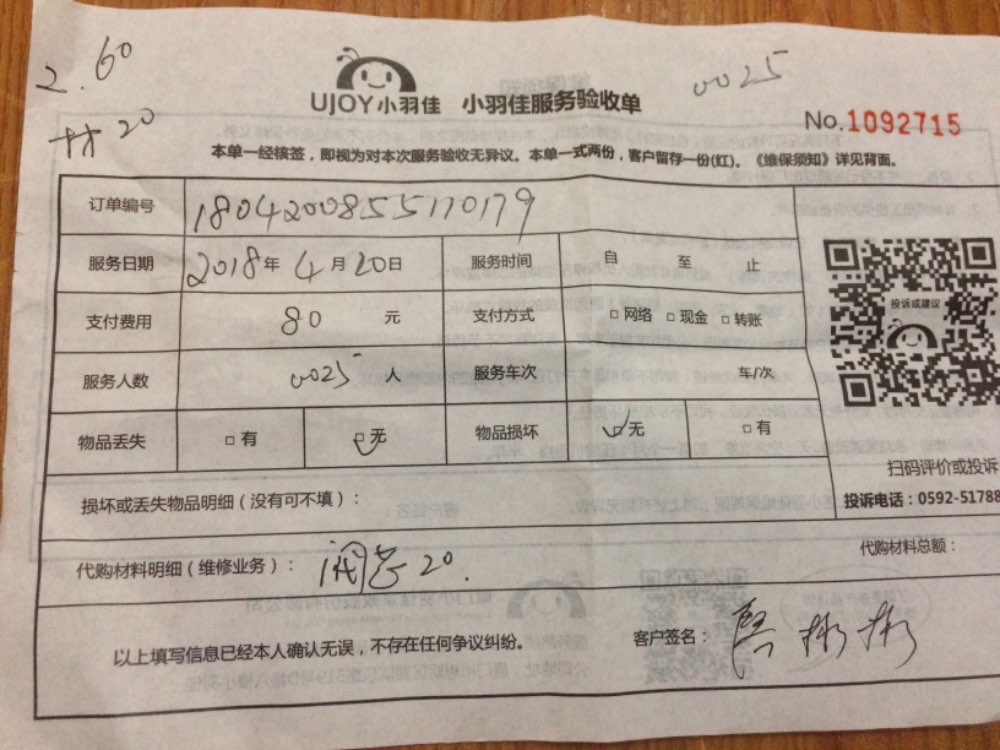 2.60
0025
材20
UJOY小羽佳 小羽佳服务验收单
No.1092715
本单一经核签，即视为对本次服务验收无异议。本单一式两份，客户留存一份(红)。《维保须知》详见背面。
订单编号 1804200855170179
服务日期 2018年4月20日 服务时间 自 至 止
支付费用 80 元 支付方式 □网络 □现金 □转账
投诉或建议
服务人数 0025 人 服务车次 车/次
物品丢失 □有 □无 物品损坏 □无 □有
扫码评价或投诉
损坏或丢失物品明细（没有可不填）：
投诉电话：0592-51788
代购材料明细（维修业务）： 阀芯20.
代购材料总额：
以上填写信息已经本人确认无误，不存在任何争议纠纷。
客户签名： 彬彬